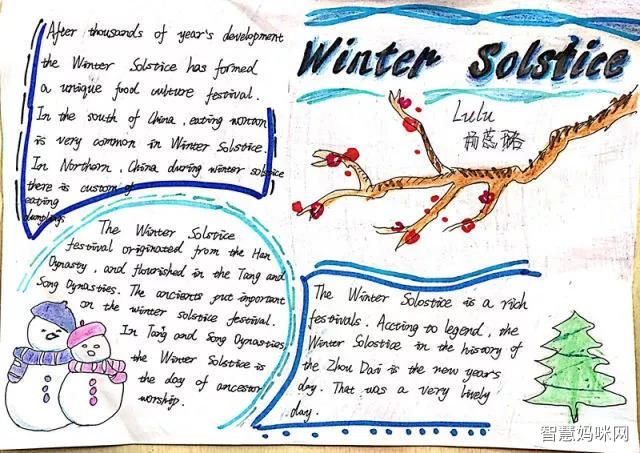 Winter Solstice
Lulu
After thousands of year's development
the Winter Solstice has formed
a unique food culture festival.
In the south of China, eating wonton
is very common in Winter Solstice.
In Northern, China during winter solstice
there is custom of
eating
dumplings
The Winter Solstice
festival originated from the Han
Dynasty, and flourished in the Tang and
Song Dynasties. The ancients put important
on the winter solstice festival.
In Tang and Song Dynasties
the Winter Solstice is
the day of ancestor
worship.
The Winter Solostice is a rich
festivals. Accting to legend, the
Winter Solostice in the history of
the Zhou Dai is the new year's
day. That was a very lively
day.
智慧妈咪网